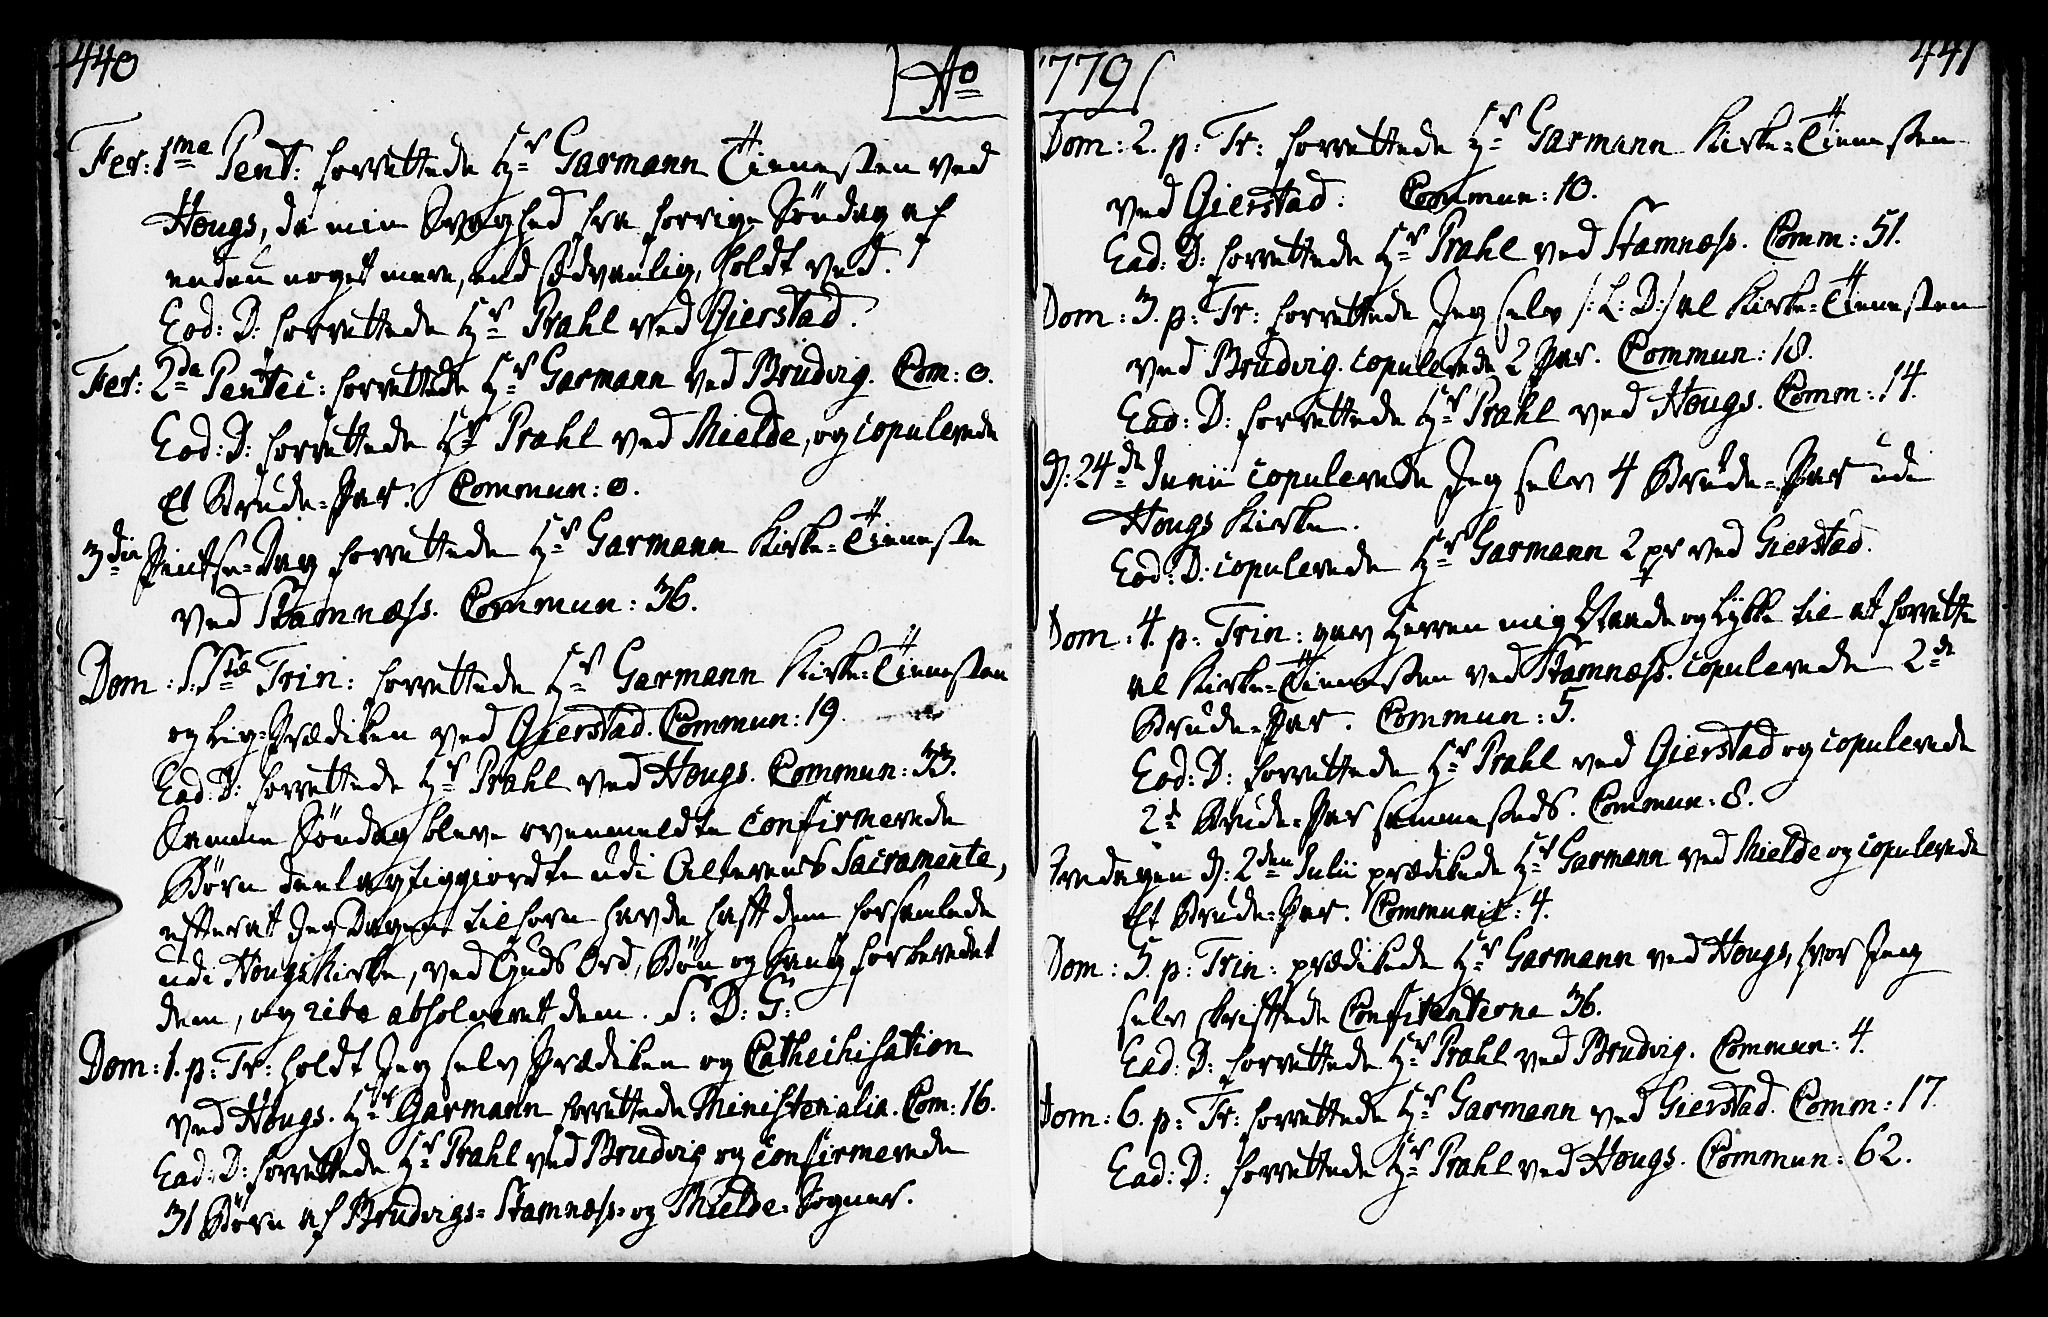 440
Ao
Fer: 1me Pent: forrettede Hr Garmann Tienesten ved
Hougs, da min Svaghed fra forrige Söndag af
endnu noget mere, end sædvanlig, holdt ved.
Eod: D: forrettede Hr Prahl ved Gierstad.
Fer: 2da Pentec: forrettede Hr Garmann ved Brudvig. Com: 0.
Eod: D: forrettede Hr Prahl ved Mielde, og copulerede
Et Brude-Par. Commun: 0.
3die Pintse-Dag forrettede Hr Garmann Kirke-Tieneste
ved Stamnæss. Commun: 36.
Dom: S: Stæ Trin: forrettede Hr Garmann Kirke-Tienesten
og Lig-Prædiken ved Gierstad. Commun: 19.
Ead: D: forrettede Hr Prahl ved Hougs. Commun: 33.
Samme Söndag bleve ovenmeldte confirmerede
Börn deelagtiggiordte udi Alterens Sacramente,
efterat Jeg Dagen tilforn havde hafft dem forsamlede
udi Hougs Kirke, ved Guds Ord, Bön og Sang forberedet
dem, og rite absolveret dem. S: D: G:
Dom: 1. p: Tr: holdt Jeg selv Prædiken og Cathechisation
ved Hougs. Hr Garmann forrettede Ministerialia. Com: 16.
Ead: D: forrettede Hr Prahl ved Brudvig og confirmerede
31 Börn af Brudvigs- Stamnæss- og Mielde-Sogner.
1779
441
Dom: 2. p: Tr: forrettede Hr Garmann Kirke-Tienesten
ved Gierstad. Commun: 10.
Ead: D: forrettede Hr Prahl ved Stamnæss. Comm: 51.
Dom: 3. p: Tr: forrettede Jeg selv /: L: D:/ al Kirke-Tienesten
ved Brudvig. copulerede 2 Par. Commun: 18.
Ead: D: forrettede Hr Prahl ved Hougs. Comm: 14.
D: 24de Junii copulerede Jeg selv 4 Brude-Par udi
Hougs Kirke.
Eod: D: copulerede Hr Garmann 2 pr ved Gierstad.
Dom: 4. p: Trin: gav Herren mig Naade og Lykke til at forrette
al Kirke-Tienesten ved Stamnæss. copulerede 2de
Brude-Par. Commun: 5.
Eod: D: forrettede Hr Prahl ved Gierstad og copulerede
2de Brude-Par sammesteds. Commun: 8.
Fredagen D: 2den Julii prædikede Hr Garmann ved Mielde og copulerede
Et Brude-Par. Communic: 4.
Dom: 5. p: Trin: prædikede Hr Garmann ved Hougs, hvor Jeg
selv skriftede Confitentione 36.
Ead: D: forrettede Hr Prahl ved Brudvig. Commun: 4.
Dom: 6. p: Tr: forrettede Hr Garmann ved Gierstad. Comm: 17.
Ead: D: forrettede Hr Prahl ved Hougs. Commun: 62.